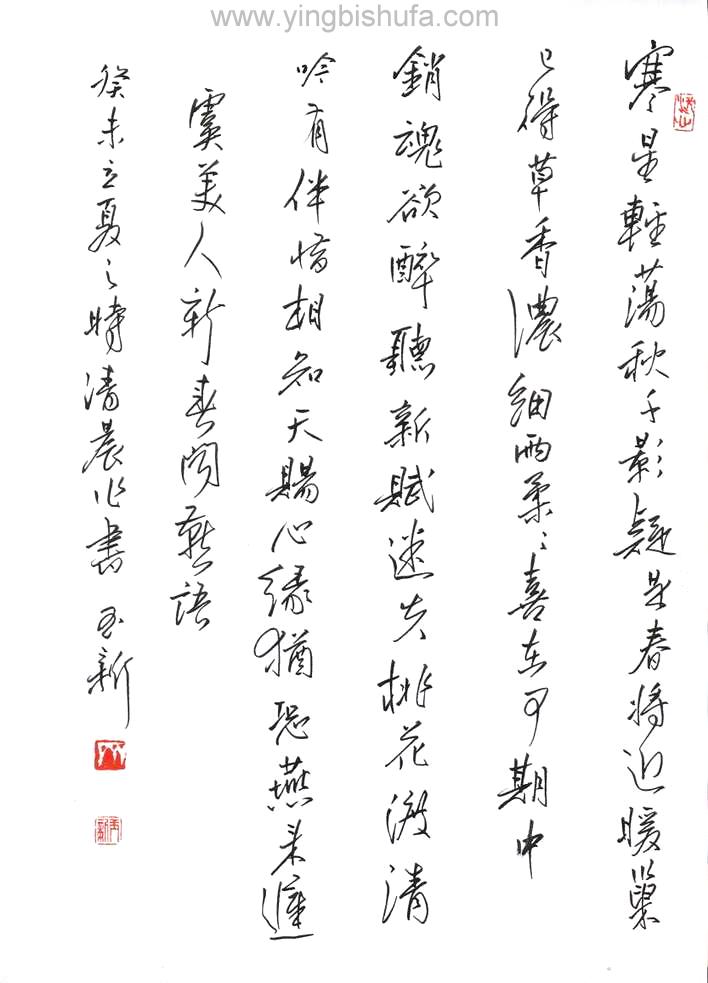 www.yingbishufa.com
寒星輕蕩秋千影疑是春將近暖巢
已得草香濃細雨柔々喜在可期中
銷魂欲醉聽新賦迷失桃花渡清
吟有伴惜相知天賜心緣猶恐燕來遲
虞美人新春聞燕語
癸未立夏之時清晨作書 玉新